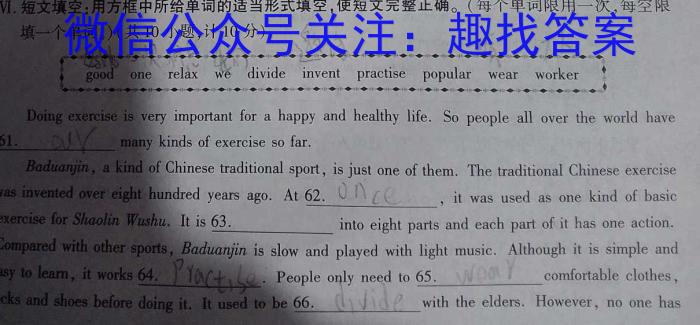 VI. 短文填空:用方框中所给单词的适当形式填空,使短文完整正确。(每个单词限用一次,每空限
填一个
微信公众号关注：趣找答案
good one relax we divide invent practise popular wear worker
Doing exercise is very important for a happy and healthy life. So people all over the world have
61. our many kinds of exercise so far.
Baduanjin, a kind of Chinese traditional sport, is just one of them. The traditional Chinese exercise
was invented over eight hundred years ago. At 62. once , it was used as one kind of basic
exercise for Shaolin Wushu. It is 63. into eight parts and each part of it has one action.
Compared with other sports, Baduanjin is slow and played with light music. Although it is simple and
asy to learn, it works 64. Practise . People only need to 65. wear comfortable clothes,
cks and shoes before doing it. It used to be 66. divide with the elders. However, no one has